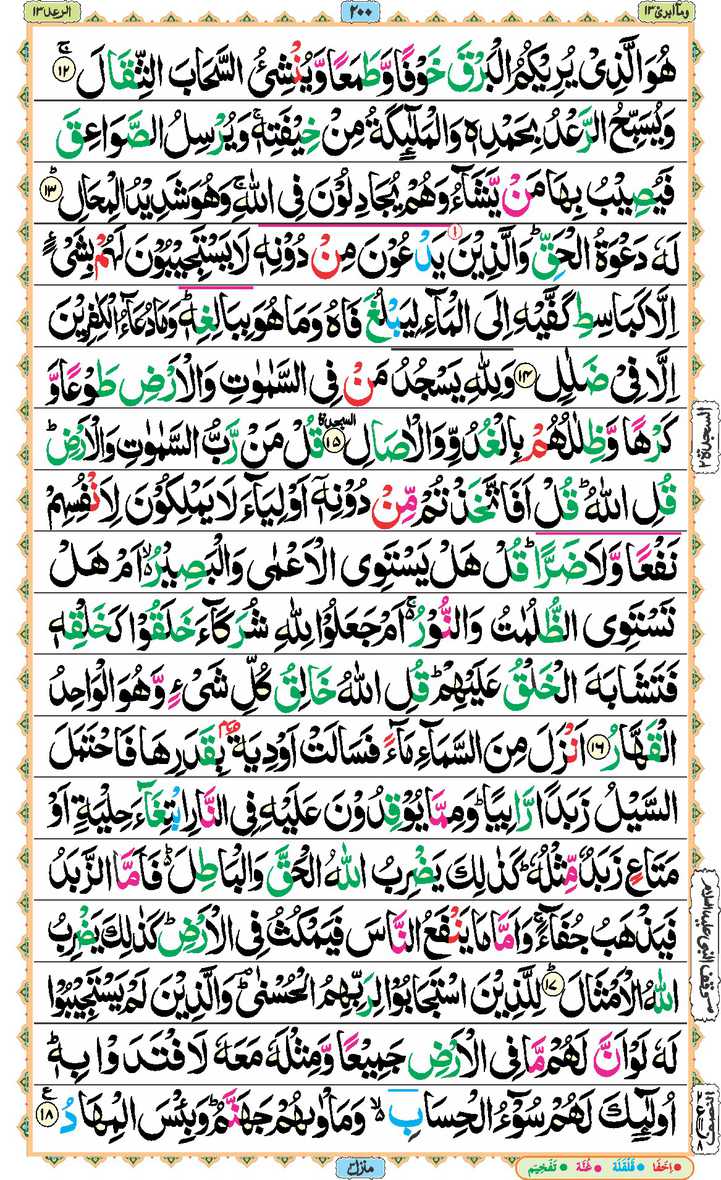 وما ابرئ ١٣
٢٠٠
الرعد ١٣
هُوَ الَّذِىْ يُرِيْكُمُ الْبَرْقَ خَوْفًا وَّطَمَعًا وَّيُنْشِئُ السَّحَابَ الثِّقَالَ ۚ ﴿١٢﴾
وَيُسَبِّحُ الرَّعْدُ بِحَمْدِهٖ وَالْمَلٰٓئِكَةُ مِنْ خِيْفَتِهٖ ۚ وَيُرْسِلُ الصَّوَاعِقَ
فَيُصِيْبُ بِهَا مَنْ يَّشَآءُ وَهُمْ يُجَادِلُوْنَ فِى اللّٰهِ ۚ وَهُوَ شَدِيْدُ الْمِحَالِ ؕ ﴿١٣﴾
لَهٗ دَعْوَةُ الْحَقِّ ؕ وَالَّذِيْنَ يَدْعُوْنَ مِنْ دُوْنِهٖ لَا يَسْتَجِيْبُوْنَ لَهُمْ بِشَىْءٍ
اِلَّا كَبَاسِطِ كَفَّيْهِ اِلَى الْمَآءِ لِيَبْلُغَ فَاهُ وَمَا هُوَ بِبَالِغِهٖ ؕ وَمَا دُعَآءُ الْكٰفِرِيْنَ
اِلَّا فِىْ ضَلٰلٍ ﴿١٤﴾ وَلِلّٰهِ يَسْجُدُ مَنْ فِى السَّمٰوٰتِ وَالْاَرْضِ طَوْعًا وَّ
كَرْهًا وَّظِلٰلُهُمْ بِالْغُدُوِّ وَالْاٰصَالِ ﴿١٥﴾ السجدة قُلْ مَنْ رَّبُّ السَّمٰوٰتِ وَالْاَرْضِ ؕ
قُلِ اللّٰهُ ؕ قُلْ اَفَاتَّخَذْتُمْ مِّنْ دُوْنِهٖۤ اَوْلِيَآءَ لَا يَمْلِكُوْنَ لِاَنْفُسِهِمْ
نَفْعًا وَّلَا ضَرًّا ؕ قُلْ هَلْ يَسْتَوِى الْاَعْمٰى وَالْبَصِيْرُ ۙ اَمْ هَلْ
تَسْتَوِى الظُّلُمٰتُ وَالنُّوْرُ ۚ اَمْ جَعَلُوْا لِلّٰهِ شُرَكَآءَ خَلَقُوْا كَخَلْقِهٖ
فَتَشَابَهَ الْخَلْقُ عَلَيْهِمْ ؕ قُلِ اللّٰهُ خَالِقُ كُلِّ شَىْءٍ وَّهُوَ الْوَاحِدُ
الْقَهَّارُ ﴿١٦﴾ اَنْزَلَ مِنَ السَّمَآءِ مَآءً فَسَالَتْ اَوْدِيَةٌۢ بِقَدَرِهَا فَاحْتَمَلَ
السَّيْلُ زَبَدًا رَّابِيًا ؕ وَمِمَّا يُوْقِدُوْنَ عَلَيْهِ فِى النَّارِ ابْتِغَآءَ حِلْيَةٍ اَوْ
مَتَاعٍ زَبَدٌ مِّثْلُهٗ ؕ كَذٰلِكَ يَضْرِبُ اللّٰهُ الْحَقَّ وَالْبَاطِلَ ۬ؕ فَاَمَّا الزَّبَدُ
فَيَذْهَبُ جُفَآءً ۚ وَاَمَّا مَا يَنْفَعُ النَّاسَ فَيَمْكُثُ فِى الْاَرْضِ ؕ كَذٰلِكَ يَضْرِبُ
اللّٰهُ الْاَمْثَالَ ؕ ﴿١٧﴾ لِلَّذِيْنَ اسْتَجَابُوْا لِرَبِّهِمُ الْحُسْنٰى ؔؕ وَالَّذِيْنَ لَمْ يَسْتَجِيْبُوْا
لَهٗ لَوْ اَنَّ لَهُمْ مَّا فِى الْاَرْضِ جَمِيْعًا وَّمِثْلَهٗ مَعَهٗ لَافْتَدَوْا بِهٖ ؕ
اُولٰٓئِكَ لَهُمْ سُوْٓءُ الْحِسَابِ ۙ وَمَاْوٰىهُمْ جَهَنَّمُ ؕ وَبِئْسَ الْمِهَادُ ﴿١٨﴾ ع
السجدة ٢
اخفا • قلقلة • غنة • تفخيم
منزل ٣